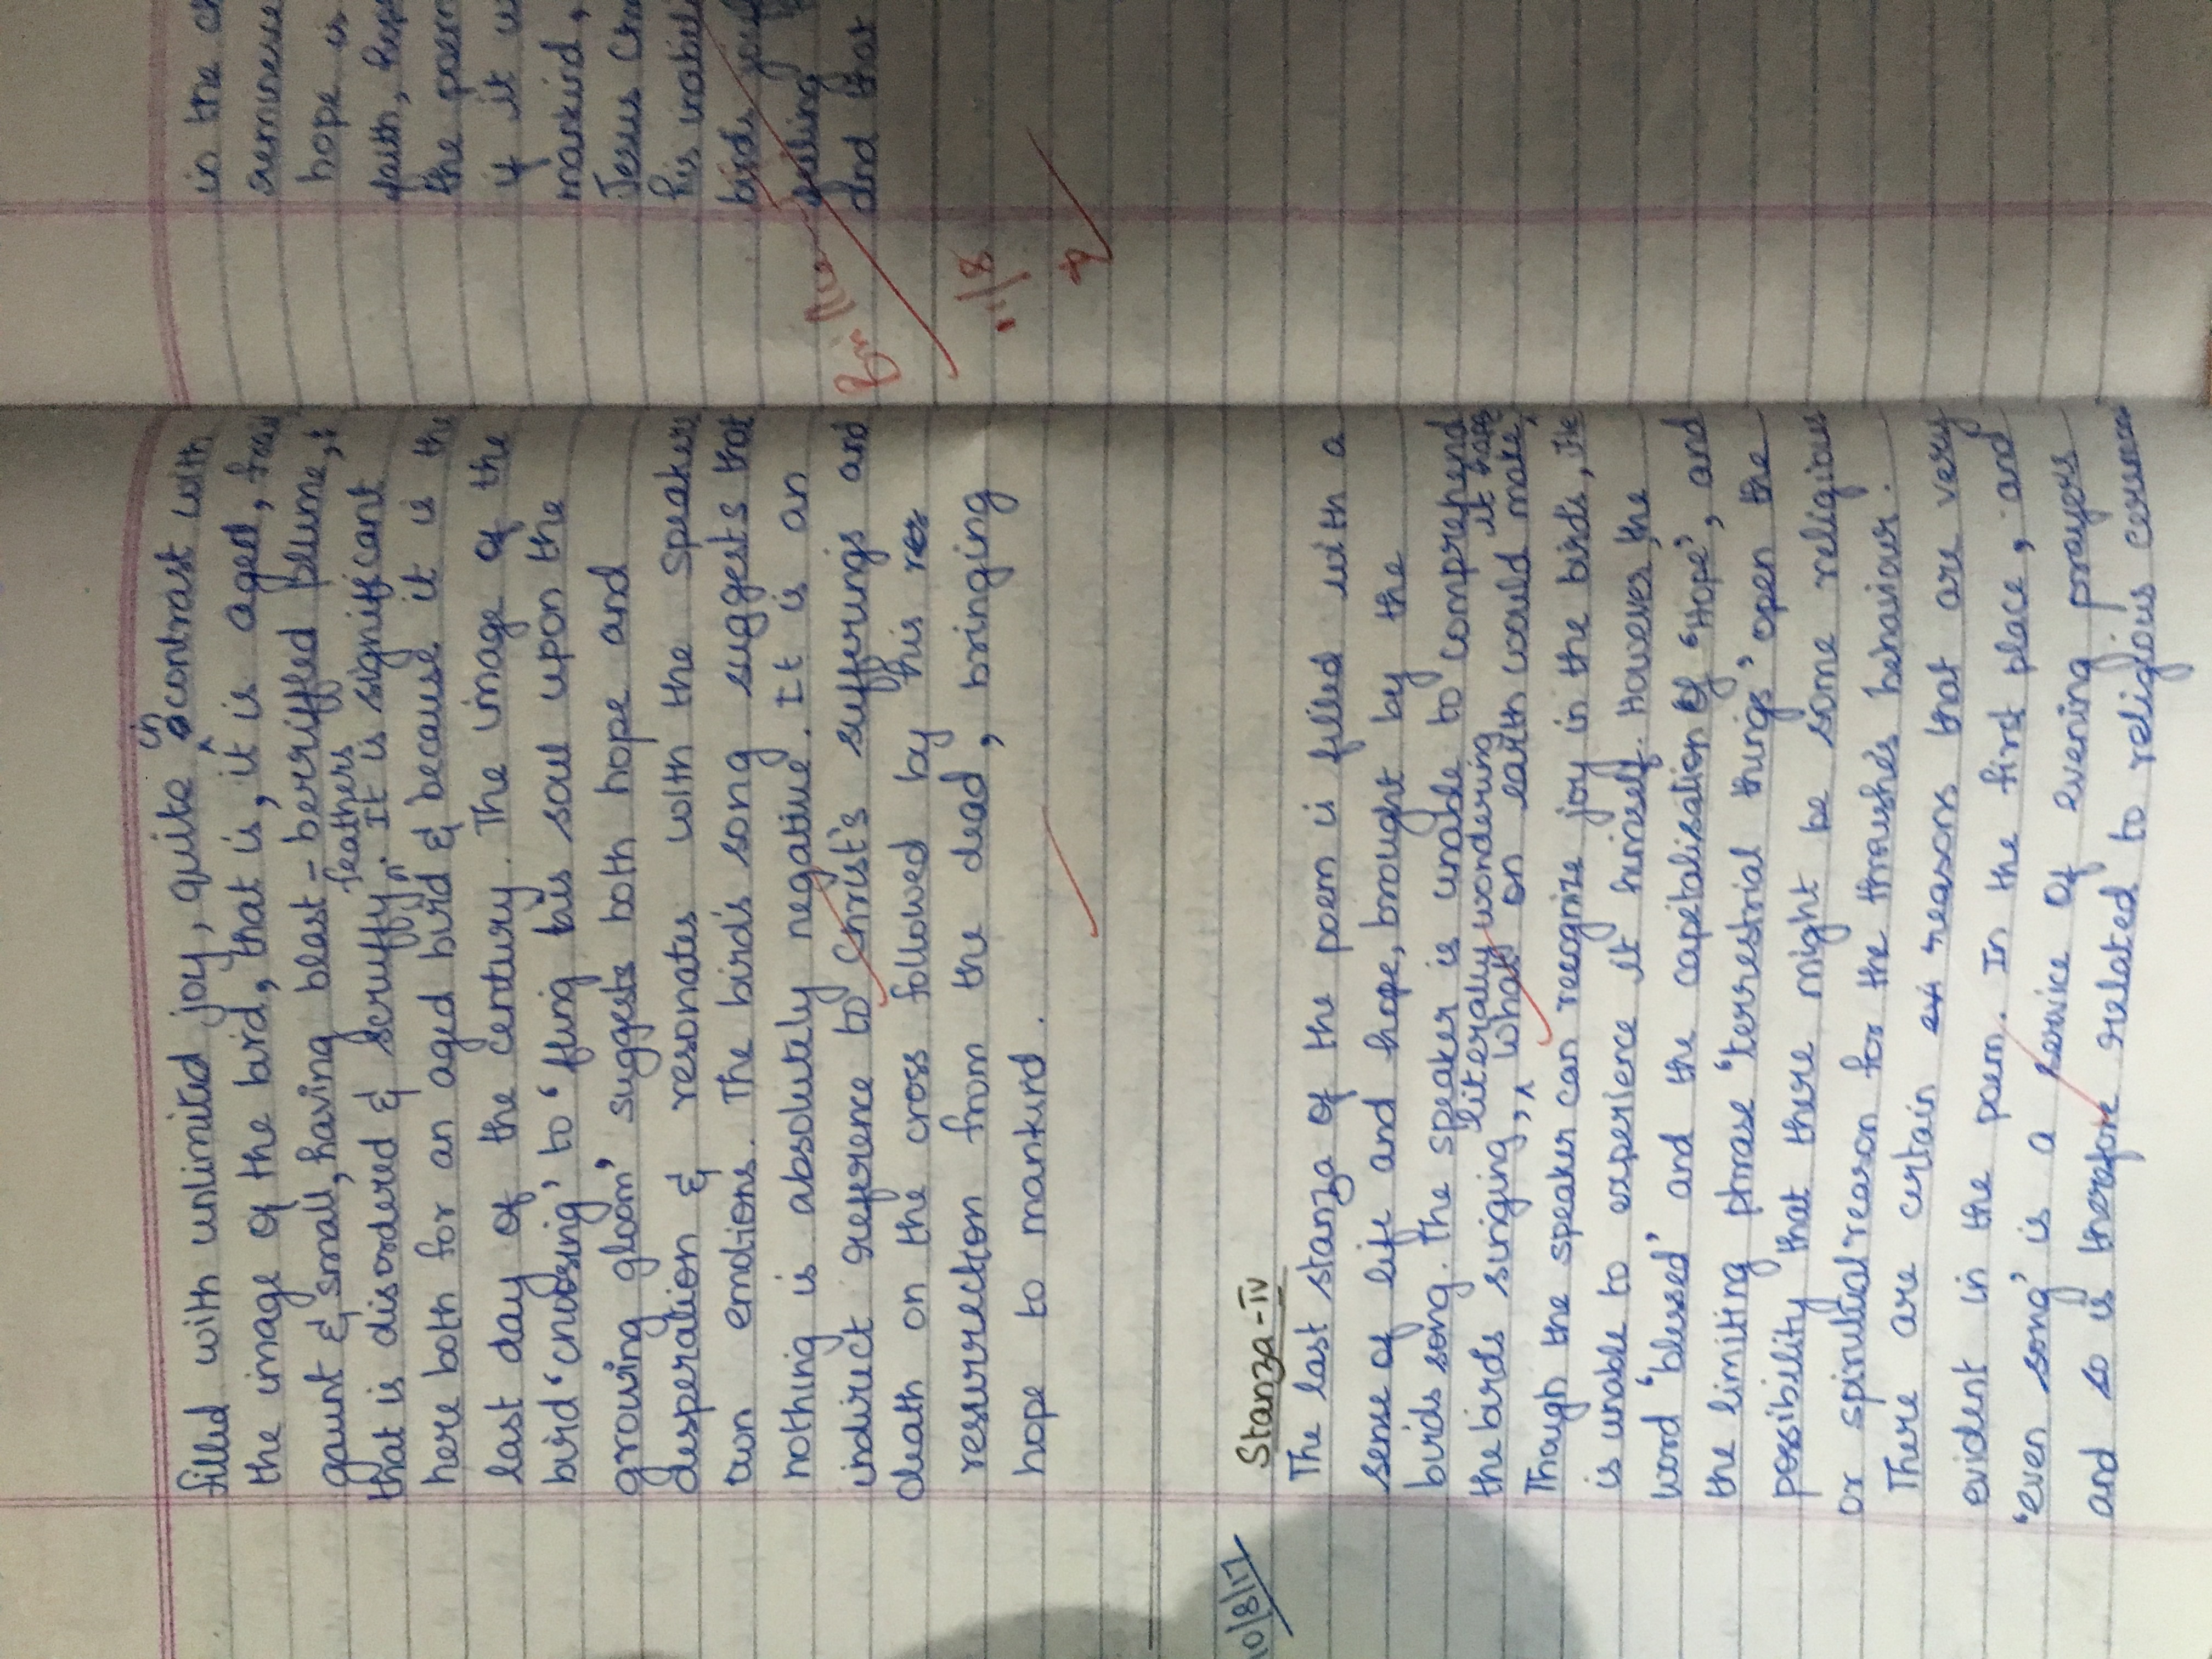 filled with unlimited joy, quite in contrast with
the image of the bird, that is, it is aged, frail
gaunt & small, having blast-berriffled plume,
that is disordered & scruffy feathers. It is significant
here both for an aged bird & because it is the
last day of the century. The image of the
bird 'choosing' to 'fling his soul upon the
growing gloom' suggests both hope and
desperation & resonates with the speakers
own emotions. The bird's song suggests that
nothing is absolutely negative. It is an
indirect reference to Christ's sufferings and
death on the cross followed by his res
resurrection from the dead, bringing
hope to mankind.
10/8/17
Stanza-IV
The last stanza of the poem is filled with a
sense of life and hope, brought by the
birds song. The speaker is unable to comprehend
the birds singing, literally wondering what on earth would make it
Though the speaker can recognize joy in the birds, He
is unable to experience it himself. However, the
word 'blessed' and the capitalisation of 'Hope', and
the limiting phrase 'terrestrial things' open the
possibility that there might be some religious
or spirutual reason for the thrushe's behaviour.
There are certain ex reasons that are very
evident in the poem. In the first place, and
'even song' is a service of evening prayers
and so is therefore related to religious
in the
hope is
faith,
the poem
if it
mankind,
Jesus
his
birds
feeling
and that